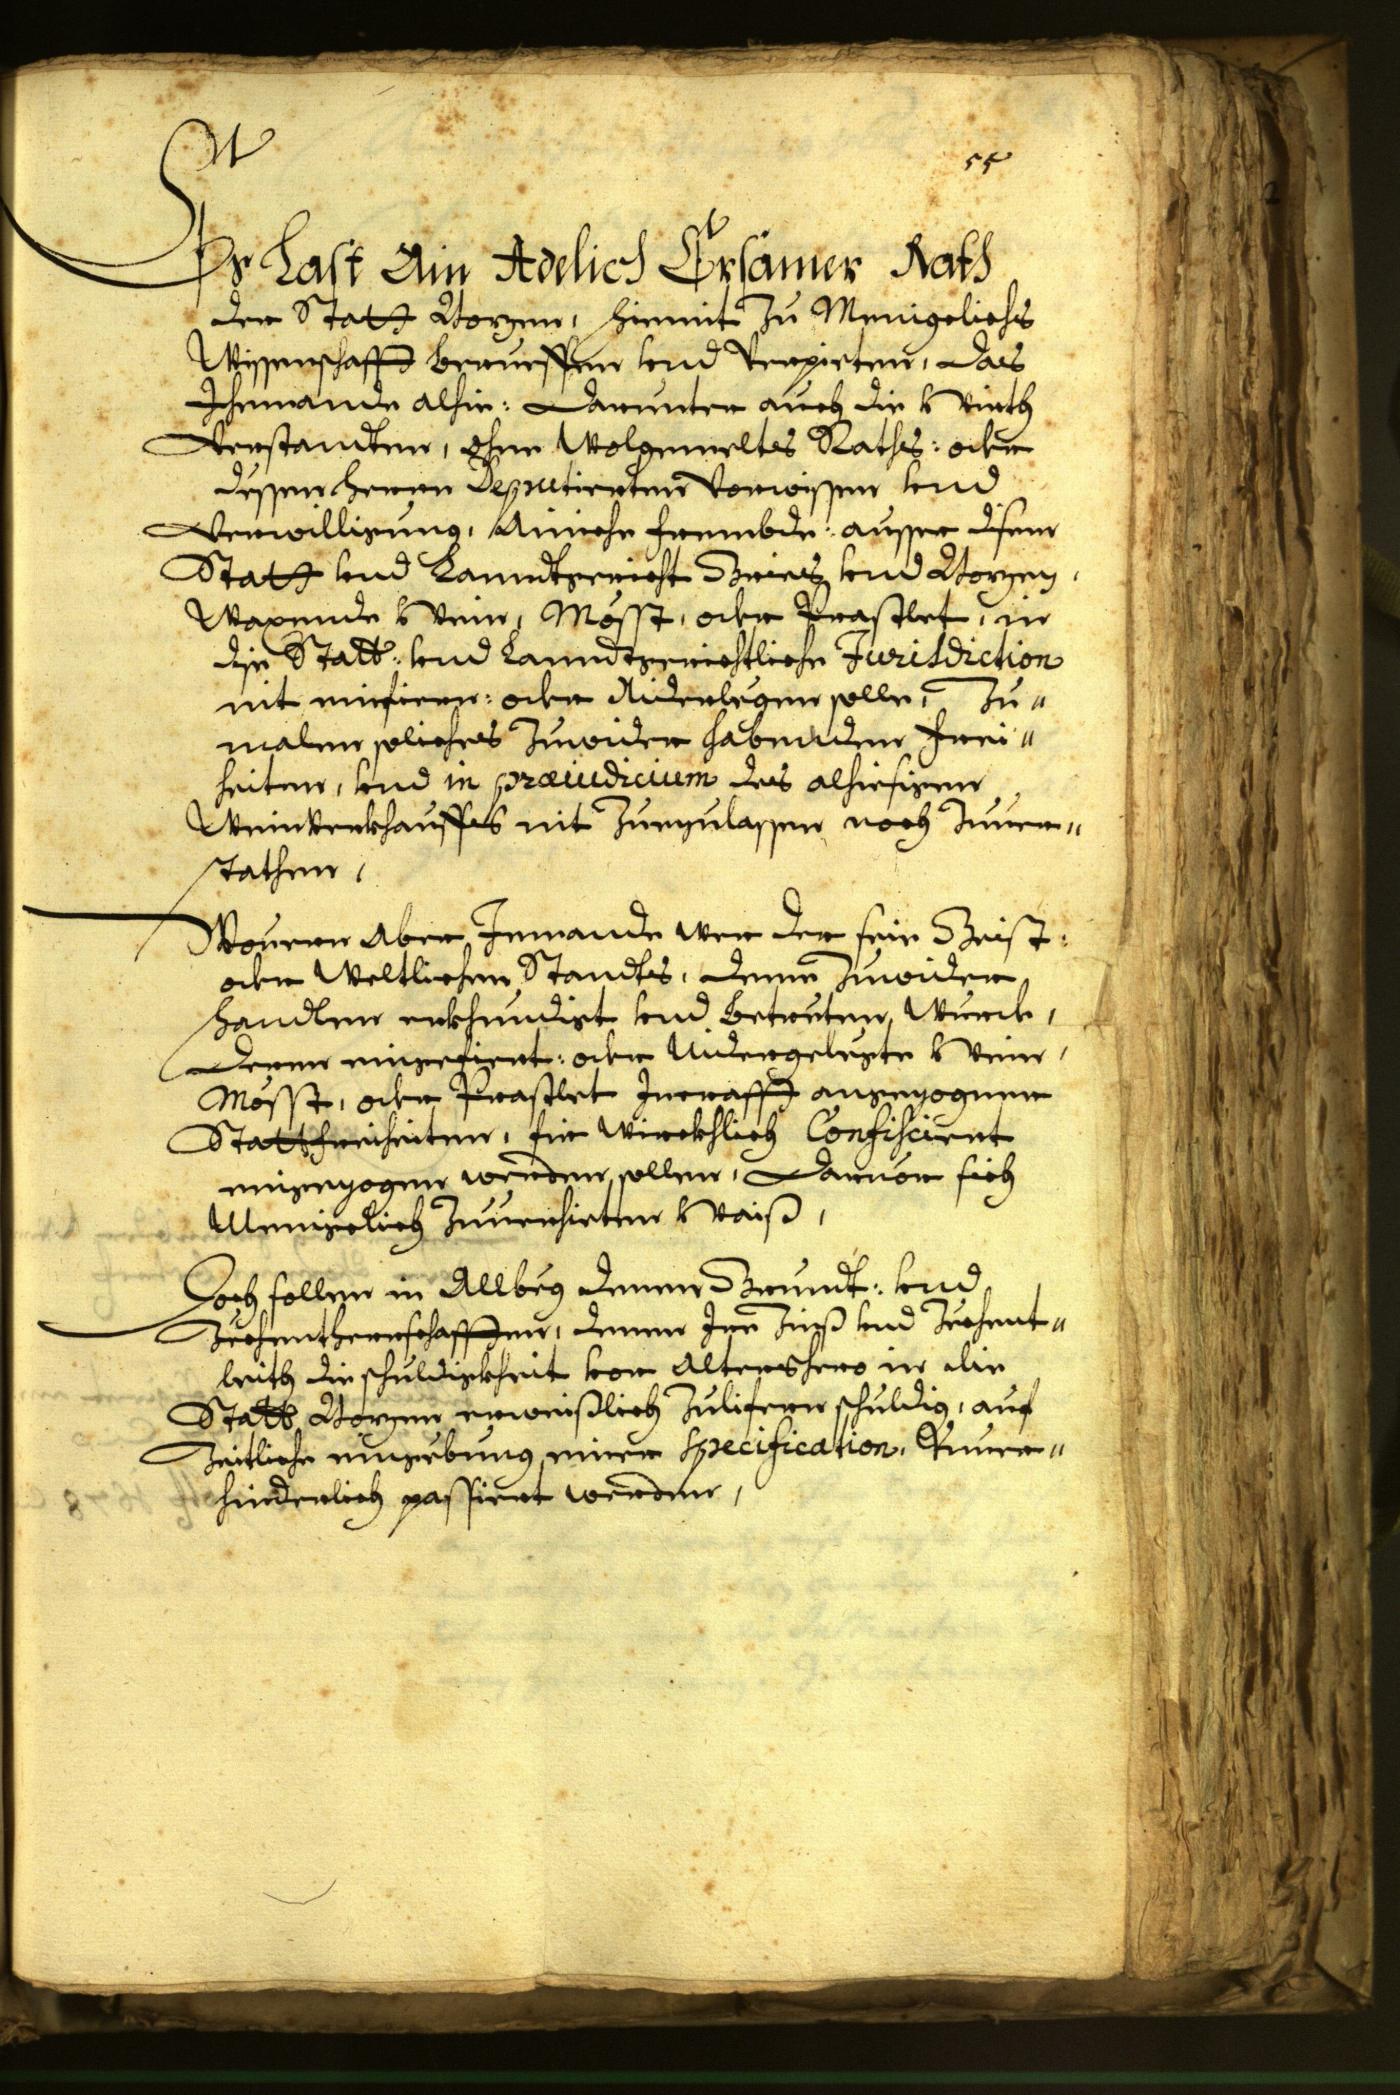 55
Es Last Ain Adelich Ersamer Rath
der Statt Bozen, hiemit zu Menigelichs
Wissenschafft beruessen vnd verpieten, das
Jhemande alhie: darunter auch die Würth
verstandten, ohne Wolgemeltes Raths: oder
dessen herrn Deputierten vorwissen vnd
verwilligung, Ainiche frembde: ausser diser
Statt vnd Lanndtgericht Gries vnd Bozen,
Waxende Wein, Mösst, oder Praschlet, in
die Statt: vnd Lanndtgerichtliche Jurisdiction
nit einfieren: oder Niderlegen solle, Zu„
malen soliches zuwider habenden Frei„
heiten, vnd in præiudicium des alhiesigen
Weinverkhauffes nit zuezulassen noch zuuer„
stathen,
Wouern aber Jemande wer der seie Geist:
oder Weltlichen Standts, deme zuwider
handlen erkhundigt vnd betreten, Wurde,
deren eingefiert: oder Nidergelegte Wein,
Mösst, oder Praschlet Jncrafft angezognen
Stattfreiheiten, für Würckhlich Confisciert
eingezogen werden sollen, daruor sich
Menigelich zuuerhieten Waiß,
Doch sollen in Allweg denen Grundt: vnd
Zechentherrschafften, denen Jre Zinß vnd Zechent„
leith die schuldigkheit von Altershero in die
Statt Bozen erweißlich zulifern schuldig, auf
Zeitliche eingebung einer specification, Vnuer„
hinderlich passiert werden,